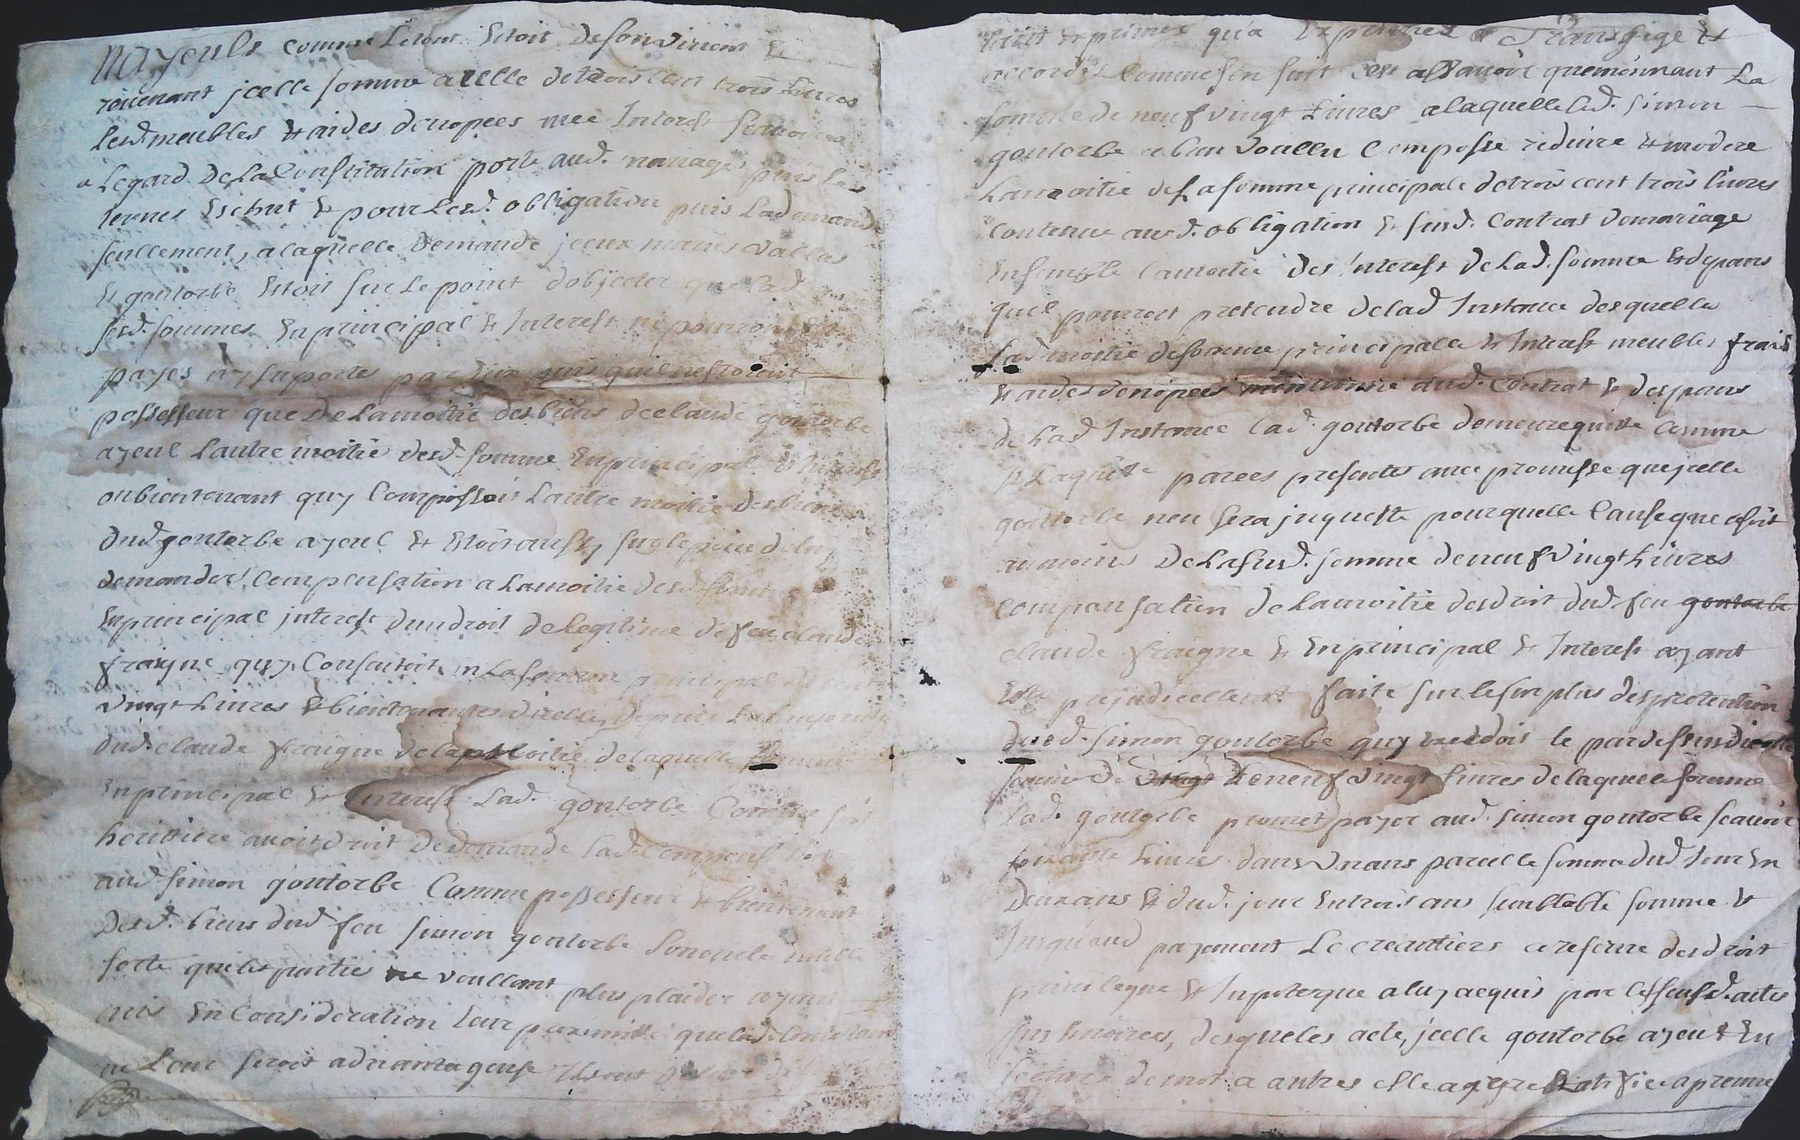 mayeuls comme letout Estoit defonvinient &
reuenant jcelle somme a celle de trois cent trois Liures
lesd. meubles & aides denopees auec Interest scauoir
a Legard De La Constitution porte aud. mariage puis les
termes Eschut & pour Lesd. obligation puis La demande
seullement, a laquelle Demande jceux maries vallas
& gontorbe Estoit sur Le point d'objecter que lad.
sesd. sommes En principal & Interest ne pouroit Est
payes ny suportes par eux puis quil nestoient
possesseur que De Lamoitie des biens de claude gontorbe
ayeul Lautre moitie desd. somme En principal & Interest
ou bientenant quy Composoit Lautre moitie des biens
dud. gontorbe ayeul & Estoit aussy sur le point de luy
demander Compensation a Lamoitie desd. somme
En principal interest dun droit de legitime de feu claude
fraigne quy Consistoit en La somme principal de
vingt Liures & bientenantes dicelle Depuis La majorite
dud. claude fraigne de la moitie de laquelle somme
En principal & Interest Lad. gontorbe Comme son
heritiere auoit droit De demande lad. Compensation
aud. simon gontorbe Comme possesseur & bientenant
Desd. biens dud. feu simon gontorbe son oncle
sorte que les partie ne voullant plus plaider ayant
mis En Consideration Leur proximite que lad.
ne Leur seroit aduantageuse
Transige &
accordes Comme sen suit Cest assauoir que moienant La
somme de neuf vingt Liures a laquelle led. simon
gontorbe a bien voullu Composse reduire & modere
Lamoitie de La somme principale de trois cent trois liures
Contenue aud. obligation & susd. Contrat de mariage
Ensemble Lamoitie Des interest de Lad. somme & depans
quil pouroit pretendre de lad. Instance des quelle
Lad. moitie de somme principalle & Interest meubles frais
& aides denopees mentionné aud. Contrat & despans
de Lad. Instance Lad. gontorbe demeure quitte Comme
Il Laquitte par ces presentes auec promesse que jcelle
gontorbe nen sera inquiette pour quelle Cause que ce soit
au moins De La susd. somme de neuf vingt Liures
Compansation de Lamoitie des droit dud. feu gontorbe
claude fraigne & En principal & Interest ayant
Este prejudicellemt. faite sur le surplus des pretention
dud. simon gontorbe quy excedois le par dessus dicelle
somme de vingt De neuf vingt Liures de laquelle somme
Lad. gontorbe promet payer aud. simon gontorbe scauoir
soixante Liures dans vn ans pareille somme dud. Jour En
Deux ans & dud. jour En trois ans semblable somme &
Jusquaud. payement Le creantiers a reserue des droit
priuileque & Inpoteque a luy acquis par les susd. actes
sus Enoncees, desqueles acte, jcelle gontorbe ayeut Eu
lecture de mot a autres elle a agree Ratifiée aprouue